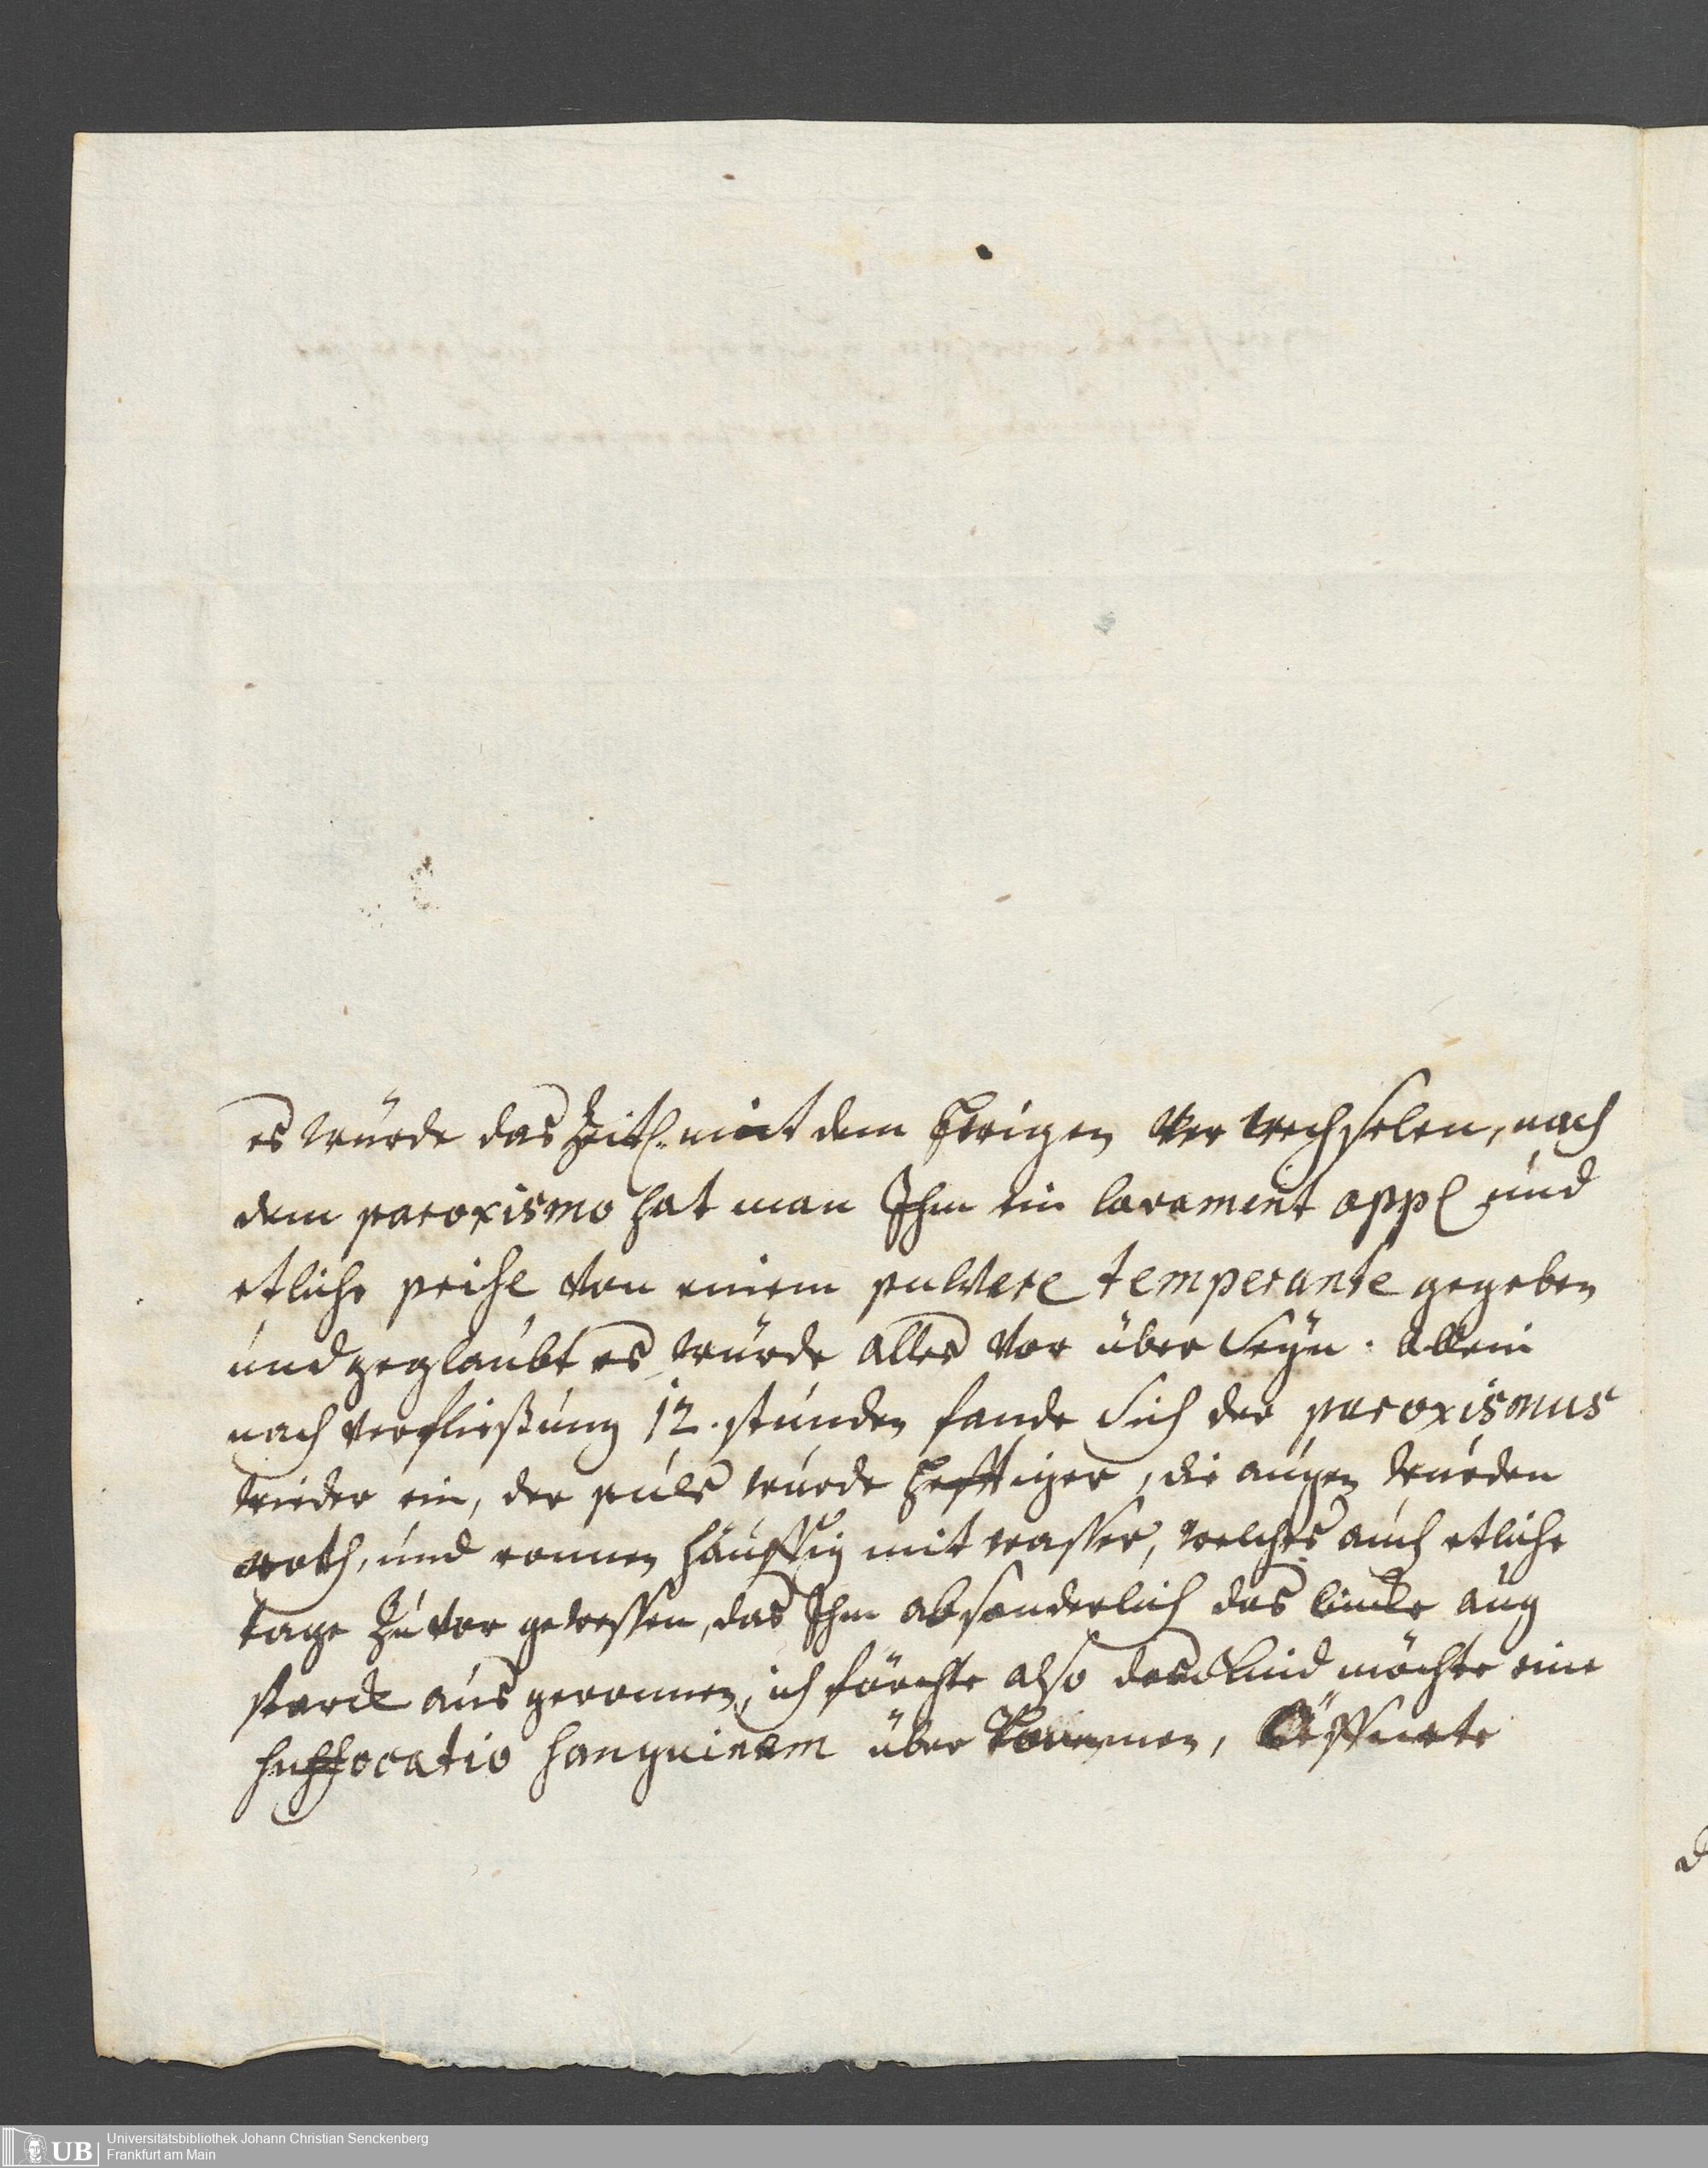 es würde das Zeitl. mit dem Ewigen verwechselen, nach
dem paroxismo hat man Ihm ein lavament appl und
etliche prise von einem pulvere temperante gegeben
und geglaubt es würde alles vor über seyn. Allein
nach verfließung 12. stunden fande sich der paroxismus
wieder ein, der puls wurde hefftiger, die augen wurden
roth, und ronnen häuffig mit wasser, welches auch etliche
tage zu vor gewessen, das Ihm absonderlich das lincke aug
starck aus geronnen, ich förchte also das Kind möchte eine
suffocatio sanguineam über kommen, öffnete
Universitätsbibliothek Johann Christian Senckenberg
Frankfurt am Main
UB